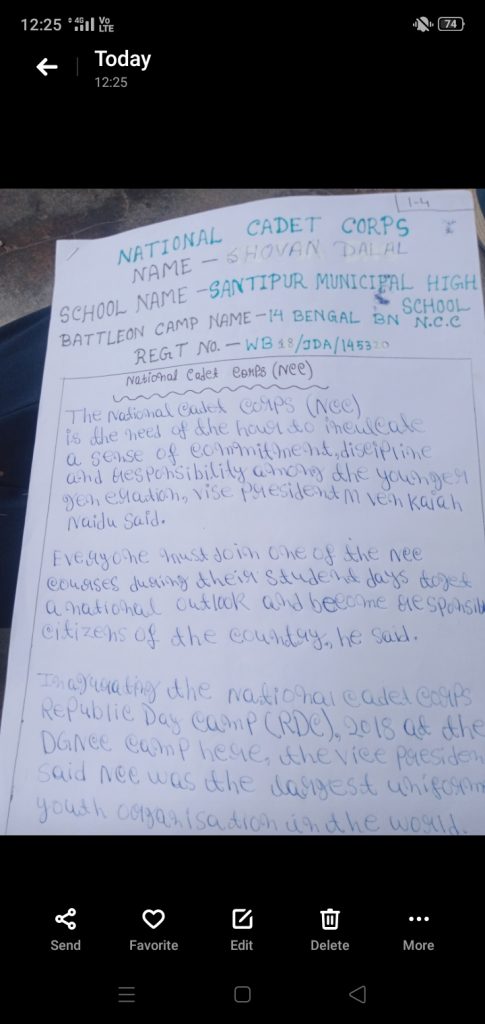 12:25 4G Vo LTE 74
Today
12:25
1-4
NATIONAL CADET CORPS
NAME - SHOVAN DALAL
SCHOOL NAME - SANTIPUR MUNICIPAL HIGH
SCHOOL
BATTLEON CAMP NAME - 14 BENGAL BN N.C.C
REGT NO. - WB18/JDA/145320
National Cadet Corps (NCC)
The National Cadet Corps (NCC)
is the need of the hour to inculcate
a sense of commitment, discipline
and responsibility among the younger
generation, vise president M Venkaiah
Naidu said.
Everyone must join one of the NCC
courses during their student days to get
a national outlook and become responsib
citizens of the country, he said.
Inagurating the national cadet corps
Republic Day camp (RDC), 2018 at the
DGNCC camp here, the vice presiden
said NCC was the largest uniform
youth organisation in the world.
Send Favorite Edit Delete More